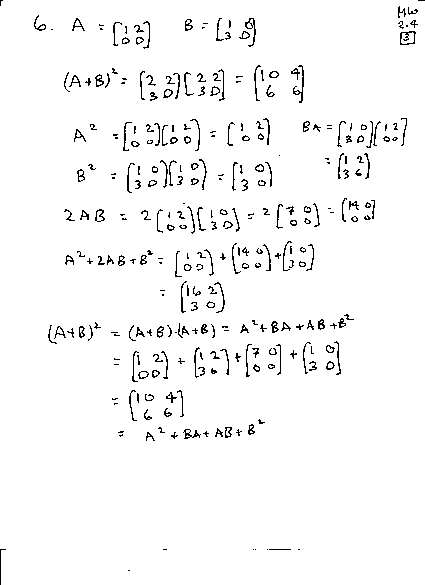 HW
2.4
3
6. A = [1 2 0 0] B = [1 0 3 0]
(A+B)² = [2 2 3 0][2 2 3 0] = [10 4 6 6]
A² = [1 2 0 0][1 2 0 0] = [1 2 0 0] BA = [1 0 3 0][1 2 0 0]
B² = [1 0 3 0][1 0 3 0] = [1 0 3 0] = [1 2 3 6]
2AB = 2[1 2 0 0][1 0 3 0] = 2[7 0 0 0] = [14 0 0 0]
A²+2AB+B² = [1 2 0 0] + [14 0 0 0] + [1 0 3 0]
= [16 2 3 0]
(A+B)² = (A+B)·(A+B) = A²+BA+AB+B²
= [1 2 0 0] + [1 2 3 6] + [7 0 0 0] + [1 0 3 0]
= [10 4 6 6]
= A²+BA+AB+B²